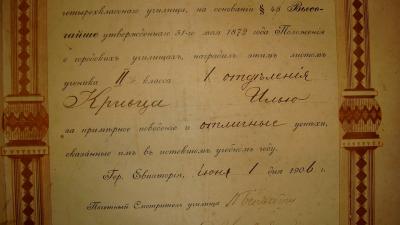 четырехкласснаго училища, на основаніи § 48 Высо-
чайше утвержденнаго 31-го мая 1872 года Положенія
о городскихъ училищахъ, наградилъ этимъ листомъ
ученика II класса 1 отдѣленія
Илью
за примѣрное поведеніе и отличные успѣхи,
оказанные имъ въ истекшемъ учебномъ году.
Гор. Евпаторія, іюня 1 дня 1906 г.
Почетный Смотритель училища